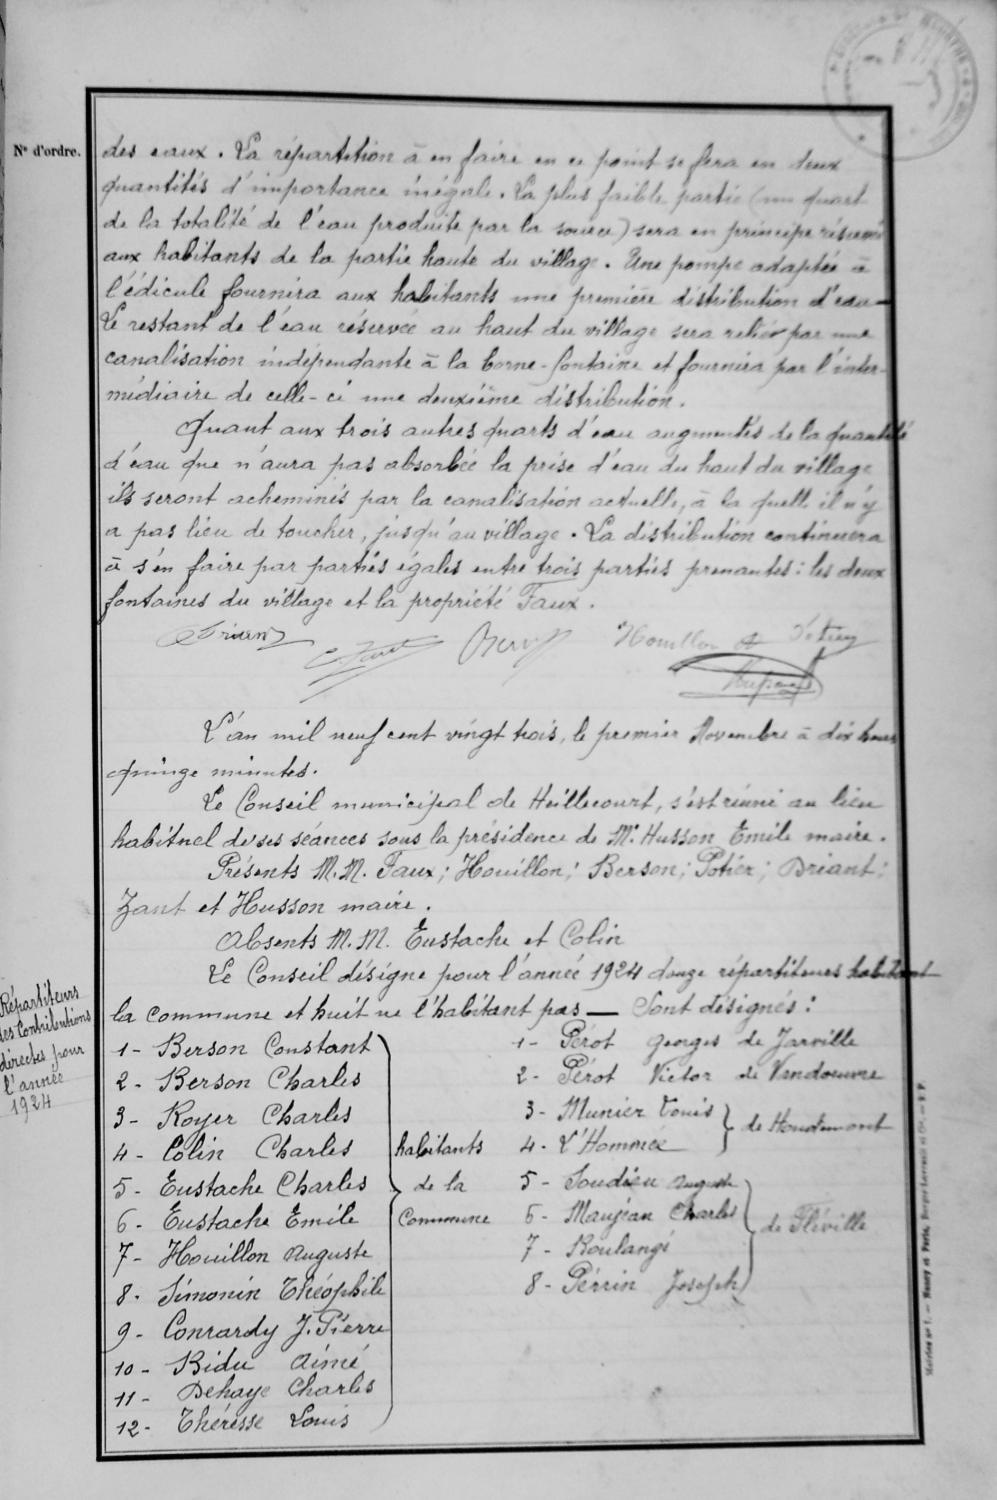 N° d'ordre.
des eaux. La répartition à en faire en ce point se fera en deux
quantités d'importance inégale. La plus faible partie (un quart
de la totalité de l'eau produite par la source) sera en principe réservée
aux habitants de la partie haute du village. Une pompe adaptée à
l'édicule fournira aux habitants une première distribution d'eau —
Le restant de l'eau réservée au haut du village sera reliée par une
canalisation indépendante à la borne-fontaine et fournira par l'inter-
médiaire de celle-ci une deuxième distribution.
Quant aux trois autres quarts d'eau augmentés de la quantité
d'eau que n'aura pas absorbée la prise d'eau du haut du village
ils seront acheminés par la canalisation actuelle, à la quelle il n'y
a pas lieu de toucher, jusqu'au village. La distribution continuera
à s'en faire par parties égales entre trois parties prenantes: les deux
fontaines du village et la propriété Faux.
Houillon
L'an mil neuf cent vingt trois, le premier Novembre à dix heures
quinze minutes.
Le Conseil municipal de Heillecourt, s'est réuni au lieu
habituel de ses séances sous la présidence de Mr Husson Emile maire.
Présents M.M. Faux; Houillon; Berson; Potier; Driant;
Zant et Husson maire.
Absents M.M. Eustache et Colin
Le Conseil désigne pour l'année 1924 douze répartiteurs habitant
la commune et huit ne l'habitant pas — Sont désignés:
Répartiteurs
des Contributions
directes pour
l'année
1924
1 - Berson Constant
2 - Berson Charles
3 - Royer Charles
4 - Colin Charles
5 - Eustache Charles
6 - Eustache Emile
7 - Houillon Auguste
8 - Simonin Théophile
9 - Conrardy J. Pierre
10 - Bidu Aimé
11 - Dehaye Charles
12 - Théresse Louis
habitants
de la
Commune
1 - Pérot Georges de Jarville
2 - Pérot Victor de Vandoeuvre
3 - Munier Louis
4 - L'Hommée
de Houdemont
5 - Soudieu Auguste
6 - Maujean Charles
7 - Boulangé
8 - Perrin Joseph
de Fléville